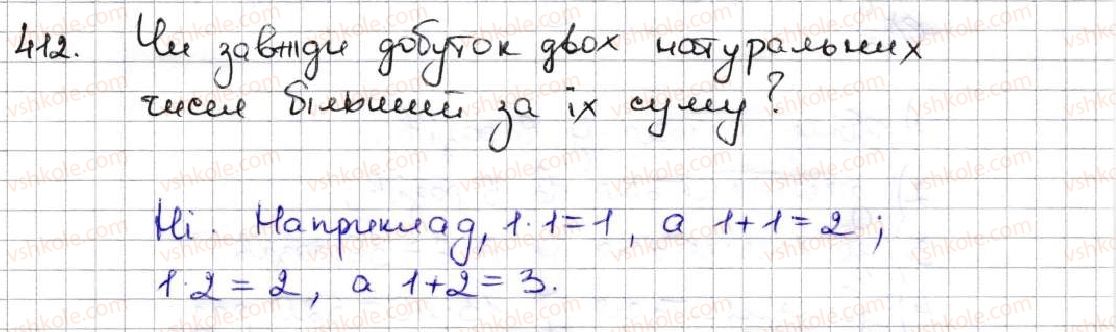 412. Чи завжди добуток двох натуральних
чисел більший за їх суму?
Ні. Наприклад, 1·1=1, а 1+1=2;
1·2=2, а 1+2=3.